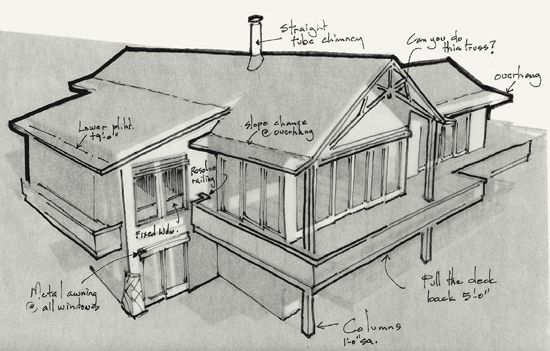 Straight
tube chimney
Can you do
this truss?
overhang
Lower plht.
to 9'-0"
slope change
@ overhang
Resolve
railing
Fixed Wdw.
Metal awning
@ all windows
Pull the deck
back 5'-0"
Columns
1'-0" sq.